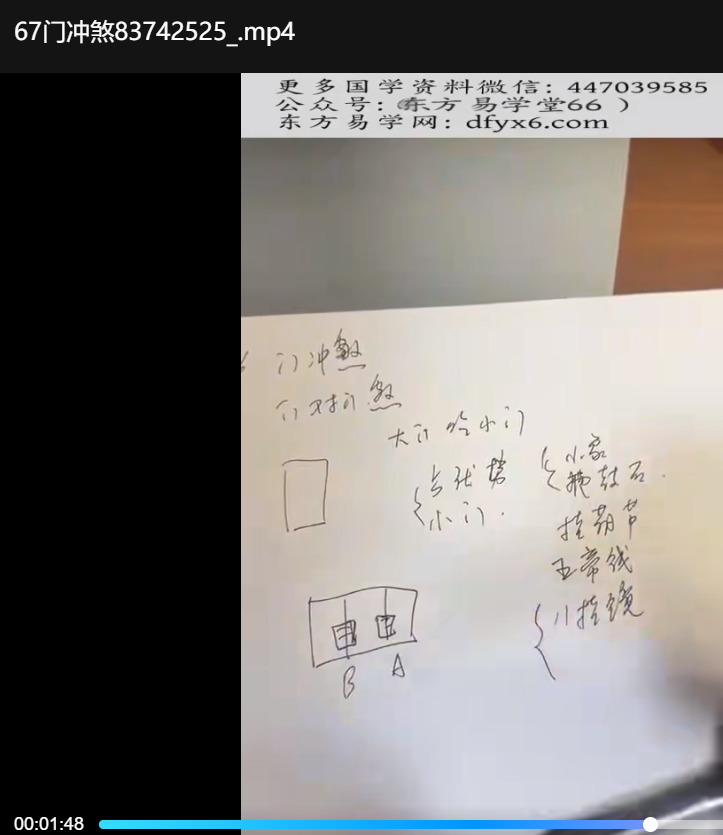 67门冲煞83742525_.mp4
更多国学资料微信：447039585
公众号：（东方易学堂66 ）
东方易学网：dfyx6.com
门冲煞
门对门煞
大门吃小门
小家
小门.
抱鼓石.
挂葫芦
五帝钱
八挂镜
B A
00:01:48